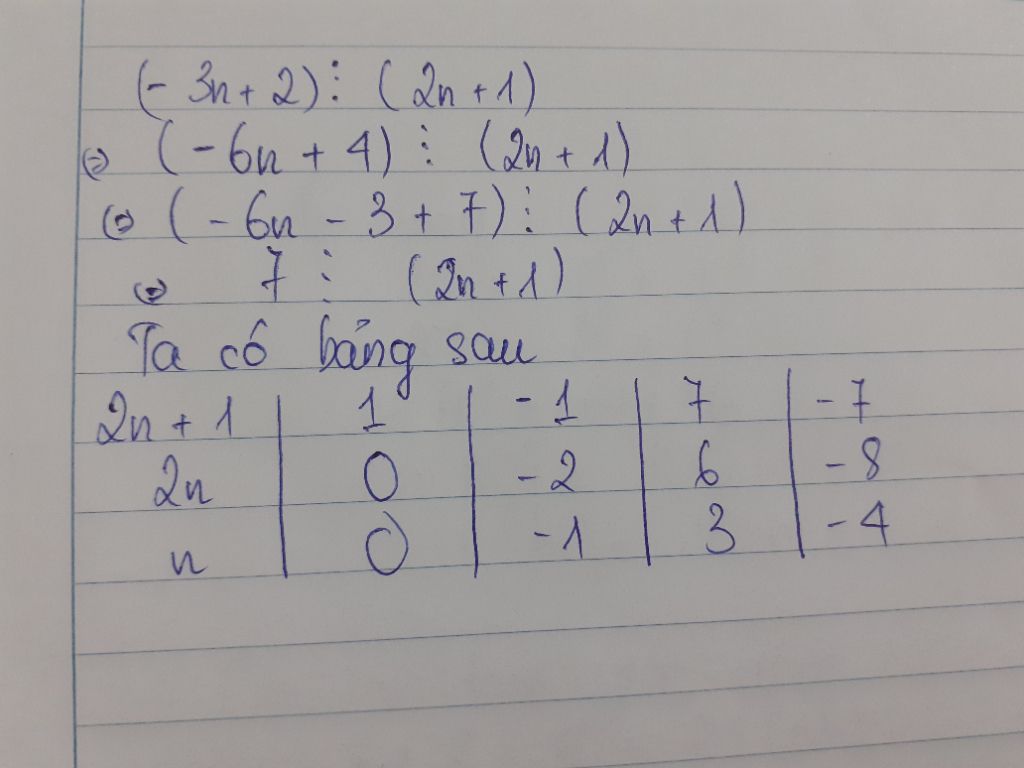 (- 3n + 2) ⋮ (2n + 1)
⇔ (- 6n + 4) ⋮ (2n + 1)
⇔ (- 6n - 3 + 7) ⋮ (2n + 1)
⇔ 7 ⋮ (2n + 1)
Ta có bảng sau
2n + 1 | 1 | - 1 | 7 | - 7
2n | 0 | - 2 | 6 | - 8
n | 0 | - 1 | 3 | - 4